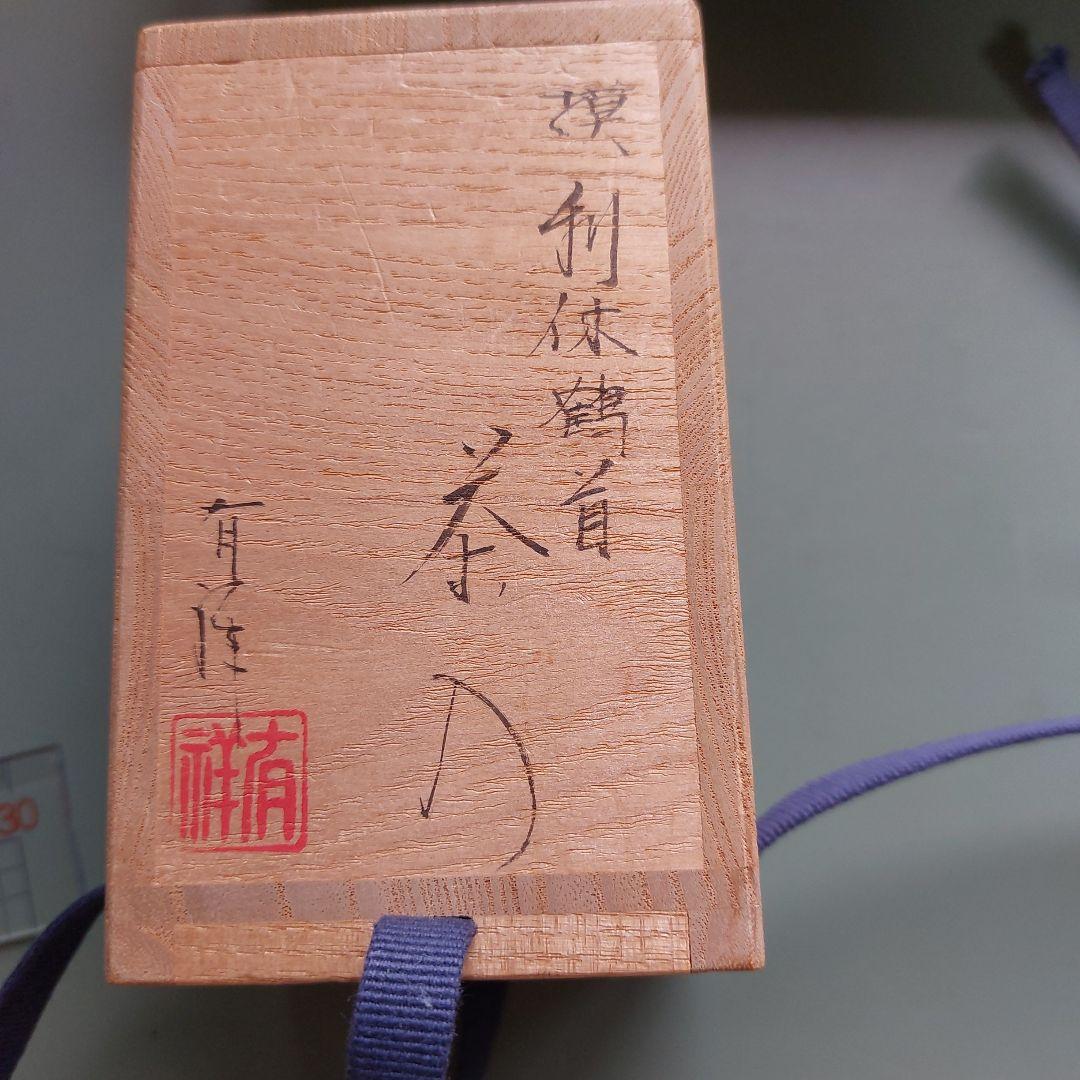 摸利休鶴首
茶入
有祥
有祥
30